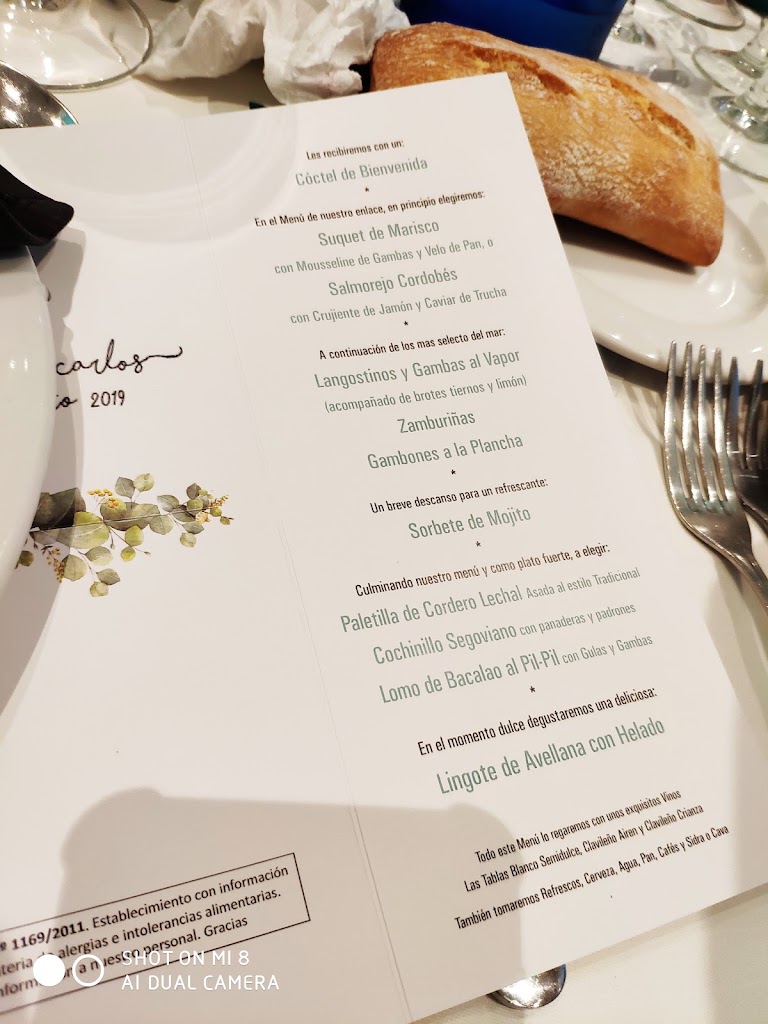 carlos
2019
Les recibiremos con un:
Cóctel de Bienvenida
*
En el Menú de nuestro enlace, en principio elegiremos:
Suquet de Marisco
con Mousseline de Gambas y Velo de Pan, o
Salmorejo Cordobés
con Crujiente de Jamón y Caviar de Trucha
*
A continuación de los mas selecto del mar:
Langostinos y Gambas al Vapor
(acompañado de brotes tiernos y limón)
Zamburiñas
Gambones a la Plancha
*
Un breve descanso para un refrescante:
Sorbete de Mojito
*
Culminando nuestro menú y como plato fuerte, a elegir:
Paletilla de Cordero Lechal Asada al estilo Tradicional
Cochinillo Segoviano con panaderas y padrones
Lomo de Bacalao al Pil-Pil con Gulas y Gambas
*
En el momento dulce degustaremos una deliciosa:
Lingote de Avellana con Helado
Todo este Menú lo regaremos con unos exquisitos Vinos
Las Tablas Blanco Semidulce, Clavileño Airen y Clavileño Crianza
También tomaremos Refrescos, Cerveza, Agua, Pan, Cafés y Sidra o Cava
1169/2011. Establecimiento con información
alergias e intolerancias alimentarias.
a nuestro personal. Gracias
SHOT ON MI 8
AI DUAL CAMERA